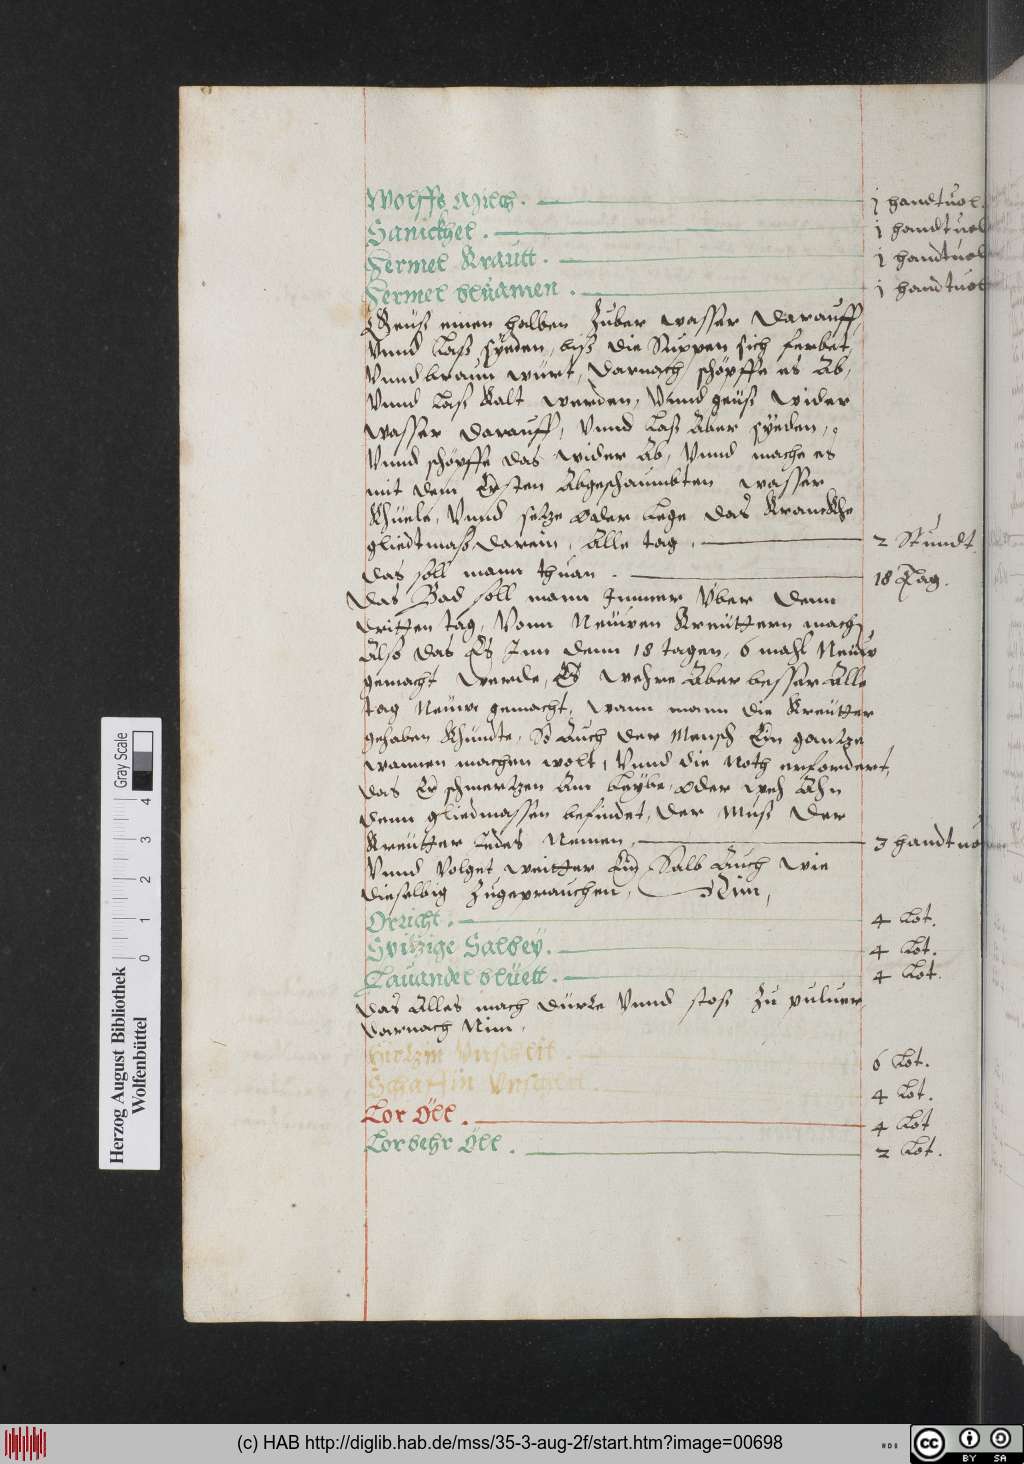 Wolffs Milch. j handtuol.
Sanickhel. j handtuol
Fermel Krautt. j handtuol
Fermel bluamen. j handtuol
Geüß einen halben Zuber wasser darauff,
Vnnd Laß syeden, biß die Suppen sich ferbet,
Vnnd braun würt, darnach schöpffe es Ab,
Vnnd Laß kalt werden, Vnnd geüß wider
wasser darauff, Vnnd Laß Aber syeden,
Vnnd schöpffe das wider Ab, Vnnd mache es
mit dem Ersten Abgeschaumbten wasser
Khuele, Vnnd setze oder Lege das Kranckhe
gliedtmaß darein, Alle tag, 2 Stundt.
das soll mann thuan. 18 Tag.
Das Bad soll mann Jmmer Vber denn
dritten tag, Vonn Neuwen Kreüttern machen
Also das Es Jnn denn 18 tagen, 6 mahl Neuw
gemacht werde, Es wehre Aber besser Alle
tag Neuw gemacht, wann mann die Kreütter
gehaben Khundte, So Auch der Mensch Ein gantze
wannen machen wolt, Vnnd die Noth erfordert,
das Er schmertzen Am Leybe, oder weh Ahn
denn gliedmassen befindet, der Muß der
Kreütter Jedes Nemen, 3 handtuol
Vnnd Volget weitter Ein Salb Auch wie
dieselbig Zugeprauchen, Nim,
4 Lot.
Spitzige Salbey. 4 Lot.
Lauandel blüett. 4 Lot.
das Alles mach dürre Vnnd stoß Zu puluer,
darnach Nim,
Hirtzin Vnschlit. 6 Lot.
Schaffin Vnschlit. 4 Lot.
Lor Öll. 4 Lot
Lorbehr Öll. 2 Lot.
Herzog August Bibliothek
Wolfenbüttel
Gray Scale
0 1 2 3 4
(c) HAB http://diglib.hab.de/mss/35-3-aug-2f/start.htm?image=00698
cc BY SA